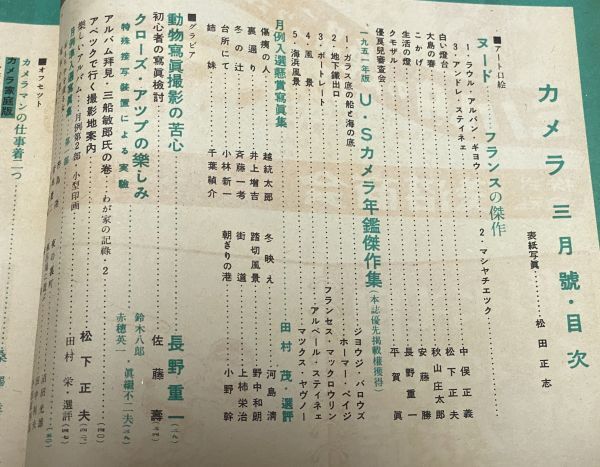 カメラ 三月號・目次
表紙写真 松田正志
■アート口絵
ヌード フランスの傑作
1・ラウル・アルバン・ギヨウ
2 マシヤチエック
3・アンドレ・スティネェ
中俣正義
白い燈台 松下正夫
大島の春 秋山庄太郎
こかげ 安藤勝
生活の燈 長野重一
クモザル 平賀眞
優良兒審査会
一九五一年版 U・Sカメラ年鑑傑作集 (本誌優先掲載権獲得)
1・ガラス底の船と海の底 ジョウジ・バロウズ
2・地下鐵出口 ホーマー・ペイジ
3・ポートレート フランセス・マックロウリン
4・風景 アルベール・スティネェ
5・海浜風景 マックス・ヤヴノー
月例入選懸賞寫眞集 田村茂選評
傷痍の人 越統太郎
冬映え 河島清
裏通り 井上増吉
踏切風景 野中和朗
冬の 斉藤一考
街道 上柿栄治
台所にて 小林新一
朝ぎりの港 小野幹
姉妹 千葉禎介
■グラビア
動物寫眞撮影の苦心 長野重一
初心者の寫眞檢討 佐藤壽
クローズ・アップの樂しみ
特殊接写装置による実驗
鈴木八郎
赤穂英一
眞繼不二夫
アルバム拝見・三船敏郎氏の巻 わが家の記録・2
アベックで行く撮影地案内 松下正夫
楽しいアルバム 月例第2部 小型印画 田村栄・選評
■オフセット
カメラマンの仕事着二つ
カメラ家庭版